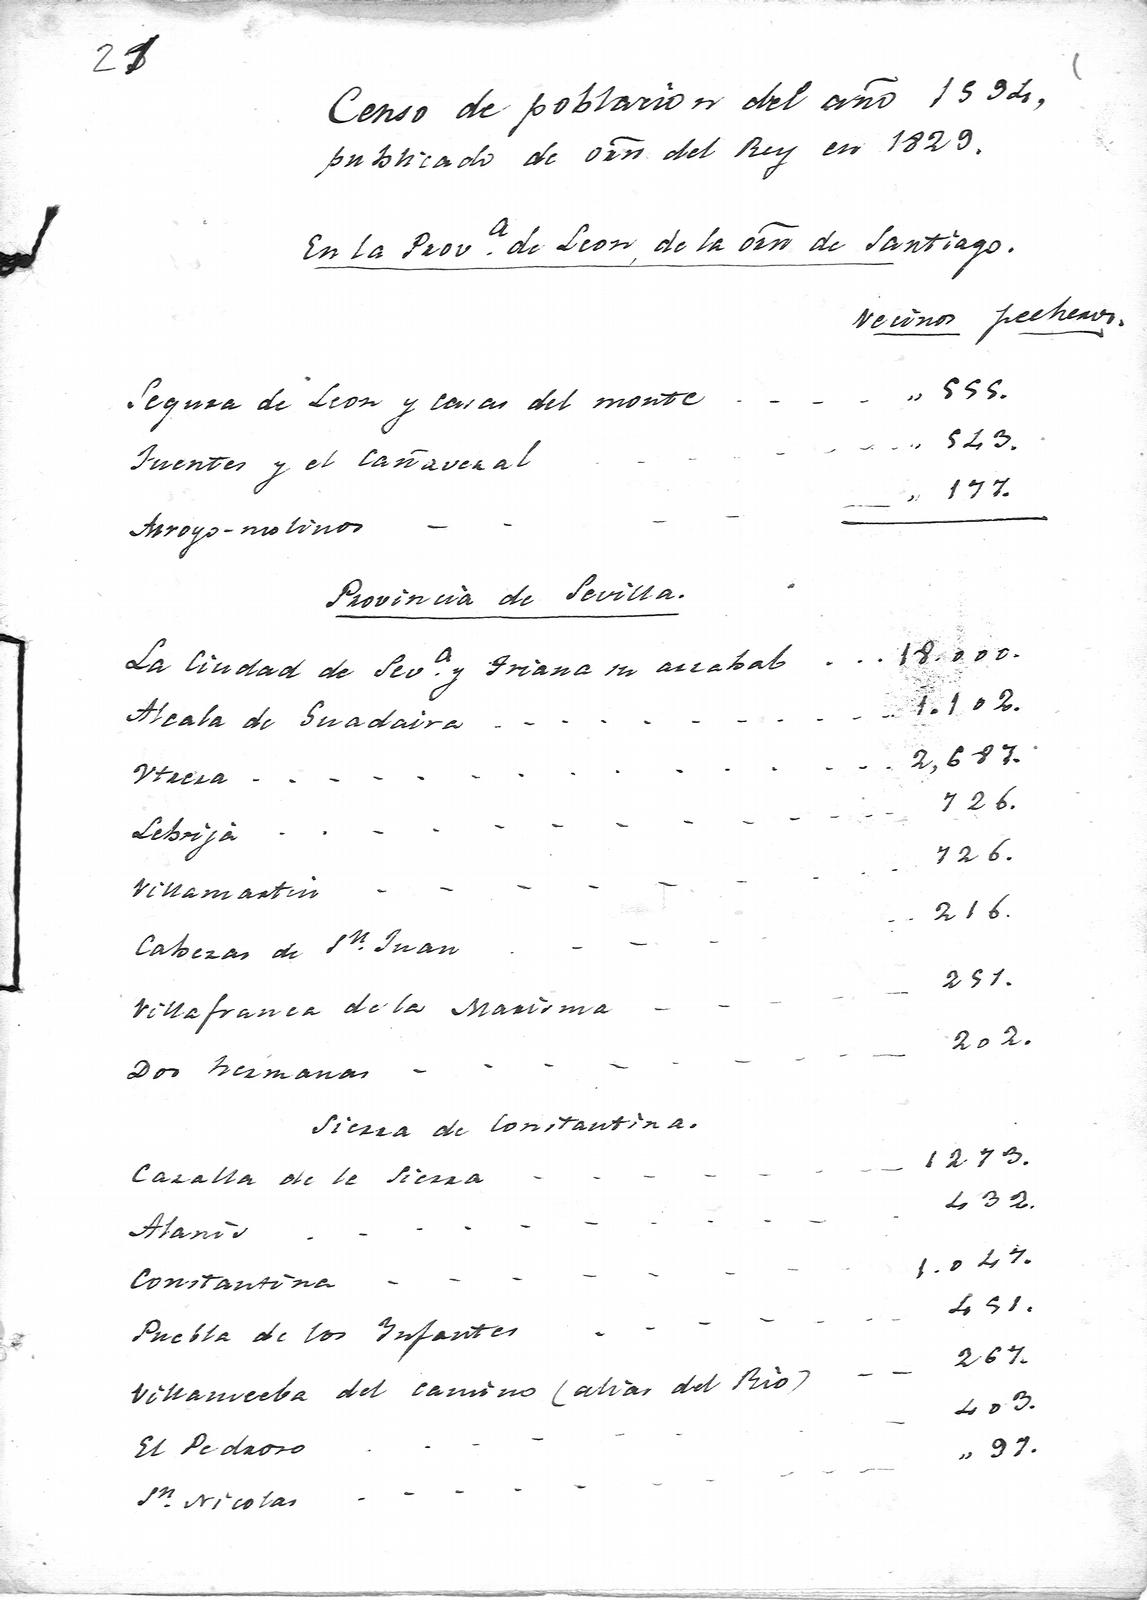 21
Censo de poblacion del año 1594,
publicado de orñ del Rey en 1829.
En la Prov.ª de Leon, de la orñ de Santiago.
Vecinos pecheros.
Segura de Leon y casas del monte - - - - „ 555.
Fuentes y el Cañaveral - - - - - „ 543.
Arroyo-molinos - - - - - „ 177.
Provincia de Sevilla.
La Ciudad de Sev.ª y Triana su arrabal . . . 18.000.
Alcala de Guadaira - - - - - - - - 1.102.
Vtrera - - - - - - - - - - 2,687.
Lebrija - - - - - - - - - 726.
Villamartin - - - - - - - - 726.
Cabezas de Sn. Juan - - - - - 216.
Villafranca de la Marisma - - - - - 251.
Dos hermanas - - - - - - - 202.
Sierra de Constantina.
Cazalla de le Sierra - - - - - - 1273.
Alanis - - - - - - - - 432.
Constantina - - - - - - - 1.047.
Puebla de los Infantes - - - - - - 451.
Villanueba del camino (alias del Rio) - - 267.
El Pedroso - - - - - 403.
Sn. Nicolas - - - - - - - „ 97.